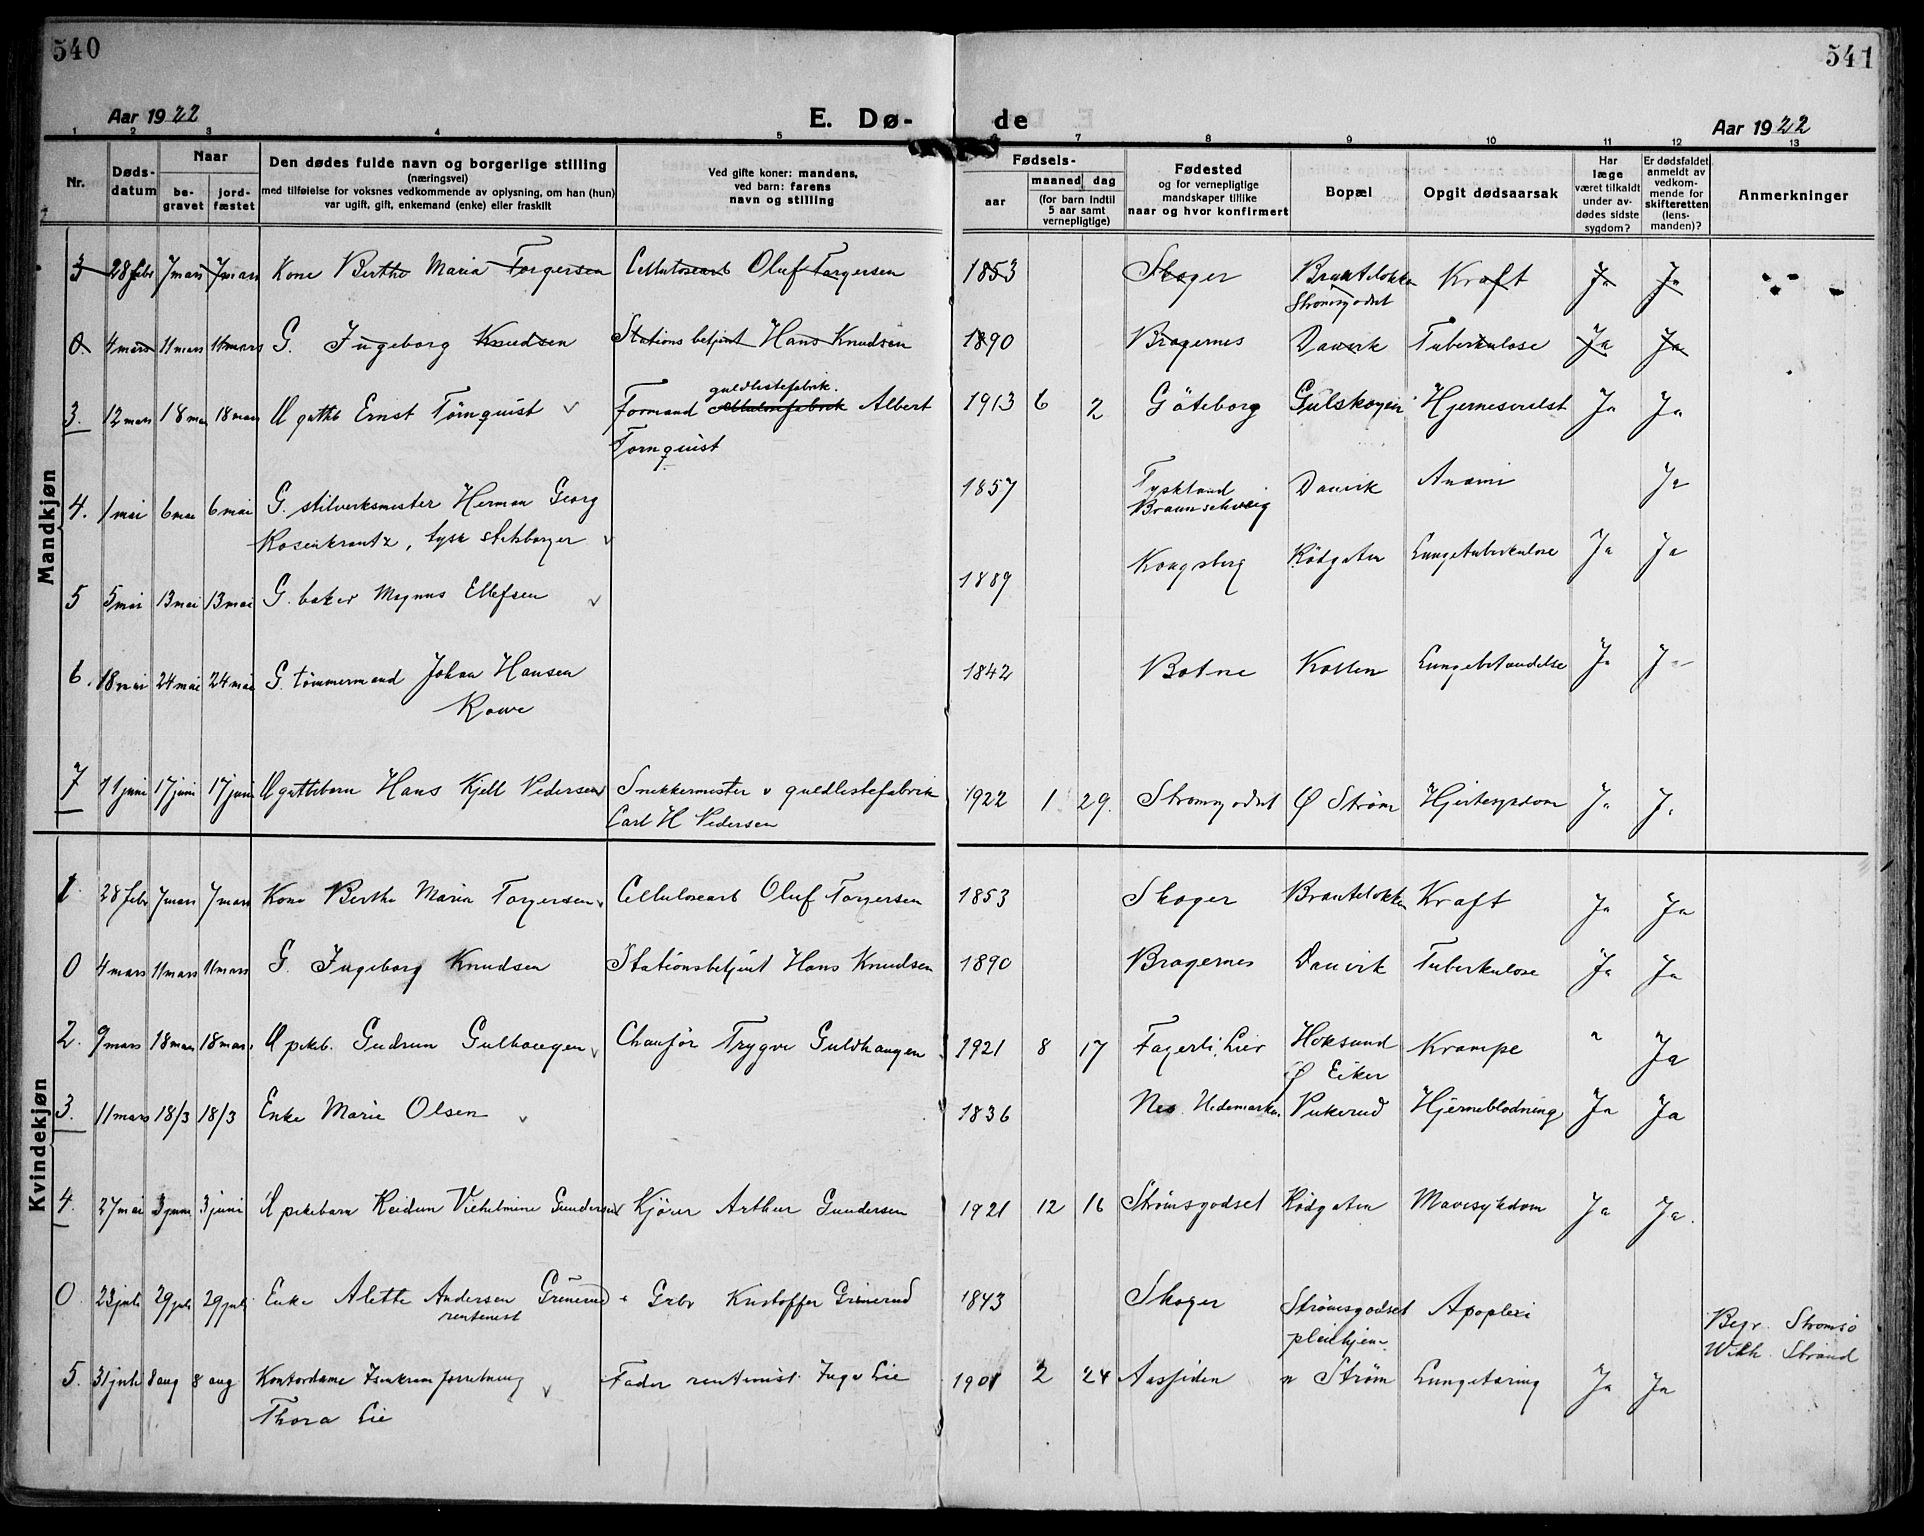 540
541
Aar 1922
E. Dø-
de
Aar 1922
1 2 3 4 5 7 8 9 10 11 12 13
Nr.
Døds-
datum
Naar
be-
gravet
jord-
fæstet
Den dødes fulde navn og borgerlige stilling
(næringsvei)
med tilføielse for voksnes vedkommende av oplysning, om han (hun)
var ugift, gift, enkemand (enke) eller fraskilt
Ved gifte koner: mandens,
ved barn: farens
navn og stilling
Fødsels-
aar
maaned
dag
(for barn indtil
5 aar samt
vernepligtige)
Fødested
og for vernepligtige
mandskaper tillike
naar og hvor konfirmert
Bopæl
Opgit dødsaarsak
Har
læge
været tilkaldt
under av-
dødes sidste
sygdom?
Er dødsfaldet
anmeldt av
vedkom-
mende for
skifteretten
(lens-
manden)?
Anmerkninger
Mandkjøn
3 28 febr 7 mars 7 mars Kone Berthe Maria Torgersen Cellulosearb Oluf Torgersen 1853 Skoger Brantelokken Kraft Ja Ja
Strømsgodset
0 4 mars 11 mars 11 mars G. Ingeborg Knudsen Stationsbetjent Hans Knudsen 1890 Bragernes Danvik Tuberkulose Ja Ja
guldlistefabrik.
3. 12 mars 18 mars 18 mars Ugutt Ernst Törnquist Formand cellulosefabrik Albert 1913 6 2 Göteborg Gulskogen Hjernesvulst Ja Ja
Tornquist
4. 1 mai 6 mai 6 mai G. stilverksmester Herman Georg 1857 Tyskland Danvik Anæmi Ja
Braunschweig
Rosenkrantz, tysk statsborger
5 5 mai 13 mai 13 mai G. baker Magnus Ellefsen 1889 Kongsberg Rödgaten Lungetuberkulose Ja Ja
6. 18 mai 24 mai 24 mai G. tömmermand Johan Hansen 1842 Botne Kollen Lungebetændelse Ja Ja
7 11 juni 17 juni 17 juni U guttebarn Hans Kjell Pedersen Snekkermester v guldlistefabrik 1922 1 29. Strømsgodset Ø Strøm Hjertesygdom Ja Ja
Carl H Pedersen
Kvindekjøn
1 28 febr 7 mars 7 mars Kone Berthe Maria Torgersen Cellulosearb Oluf Torgersen 1853 Skoger Brantelokken Kraft Ja Ja
0 4 mars 11 mars 11 mars G. Ingeborg Knudsen Stationsbetjent Hans Knudsen 1890 Bragernes Danvik Tuberkulose Ja Ja
2. 9 mars 18 mars 18 mars U pikeb. Gudrun Gulhaugen Chaufør Trygve Guldhaugen 1921 8 17 Fagerli, Lier Hoksund Krampe " Ja
Ø Eiker
3. 11 mars 18/3 18/3 Enke Marie Olsen 1836 Nes. Hedemarken Pukerud Hjerneblødning Ja Ja
4. 27 mai 3 juni 3 juni U pikebarn Reidun Vilhelmine Gundersen Kjører Arthur Gundersen 1921 12 16 Strømsgodset Rödgaten Mavesykdom Ja Ja.
0. 23 juli 29 juli 29 juli Enke Alette Andersen Grinerud Grbr Kristoffer Grinerud 1843 Skoger Strømsgodset Apoplexi
rentenist
pleiehjem
Begr. Strømsø
Wilh. Strand
5. 31 juli 8 aug 8 aug Kontordame Isenkramforretning Fader rentenist. Inge Lie 1901 2 24 Aassiden " Strøm Lungetæring Ja Ja
Thora Lie